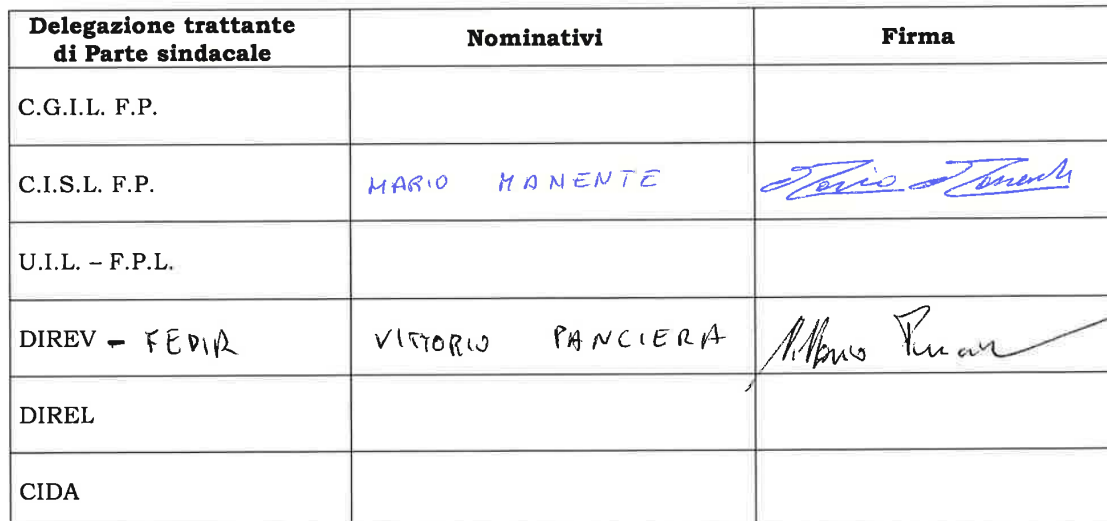 Delegazione trattante
di Parte sindacale
Nominativi
Firma
C.G.I.L. F.P.
C.I.S.L. F.P. MARIO MANENTE Mario Manente
U.I.L. – F.P.L.
DIREV - FEDIR VITTORIO PANCIERA Vittorio
DIREL
CIDA